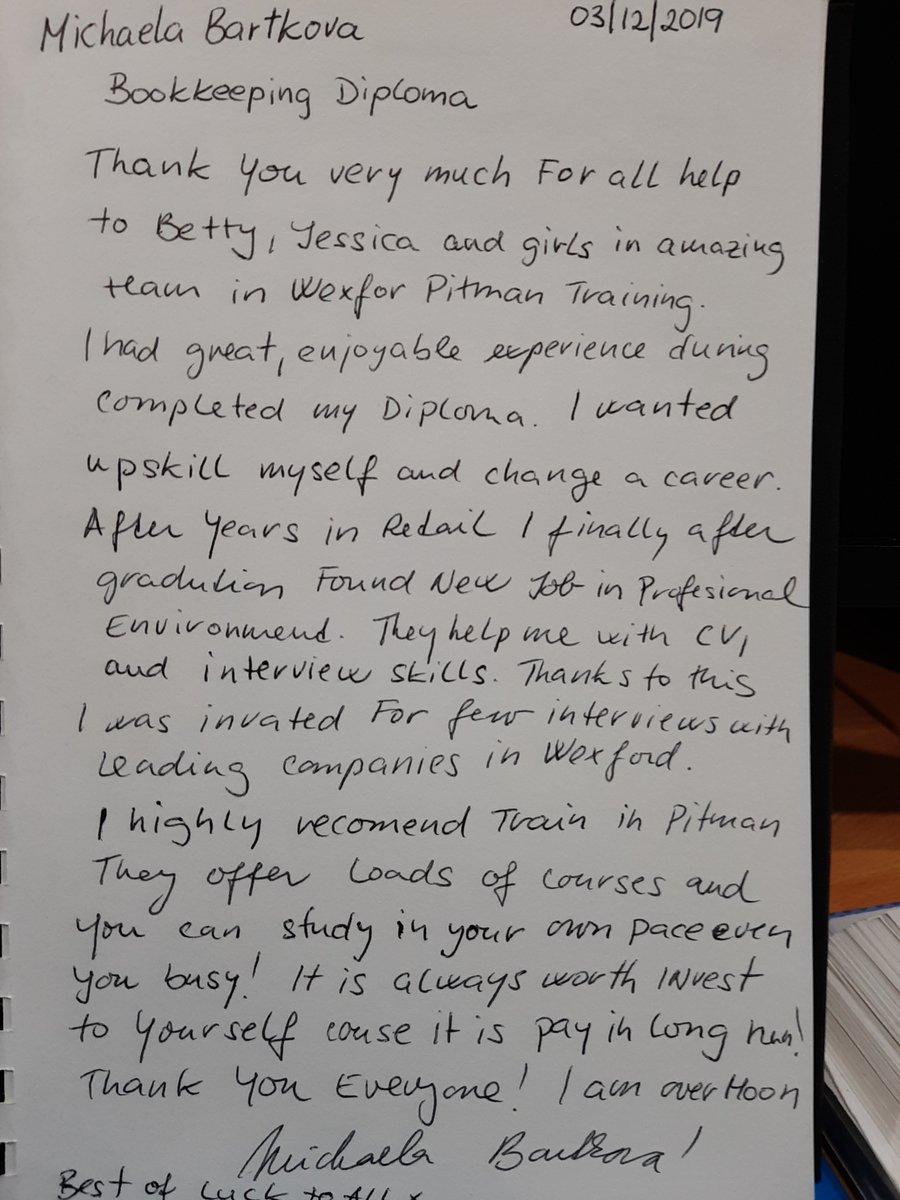 Michaela Bartkova 03/12/2019
Bookkeeping Diploma
Thank You very much For all help
to Betty, Yessica and girls in amazing
team in Wexfor Pitman Training.
I had great, enjoyable experience during
completed my Diploma. I wanted
upskill myself and change a career.
After Years in Retail I finally after
gradution Found New Job in Profesional
Environmend. They help me with CV,
and interview skills. Thanks to this
I was invated For few interviews with
Leading companies in Wexford.
I highly recomend Train in Pitman
They offer Loads of courses and
You can study in your own pace even
You busy! It is always worth INvest
to Yourself couse it is pay in Long run!
Thank You Everyone! I am over Moon
Michaela Bartkova!
Best of Luck to All x